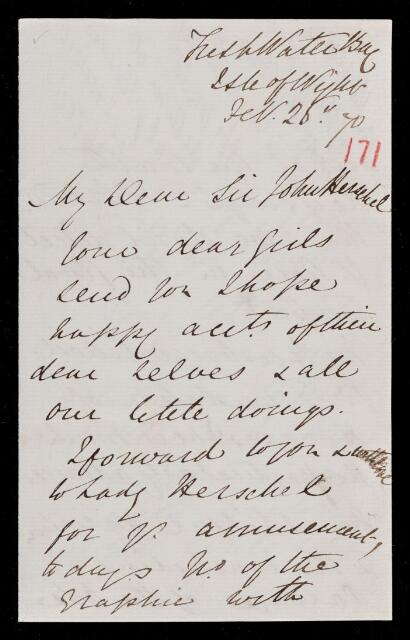 Fresh Water Bay
Isle of Wight
Feb. 28". 70
171
My Dear Sir John Herschel
Your dear Girls
send you I hope
happy acct.s of their
dear selves & all
our little doings.
I forward to you &
to Lady Herschel
for yr. amusement,
todays No. of the
Graphic with